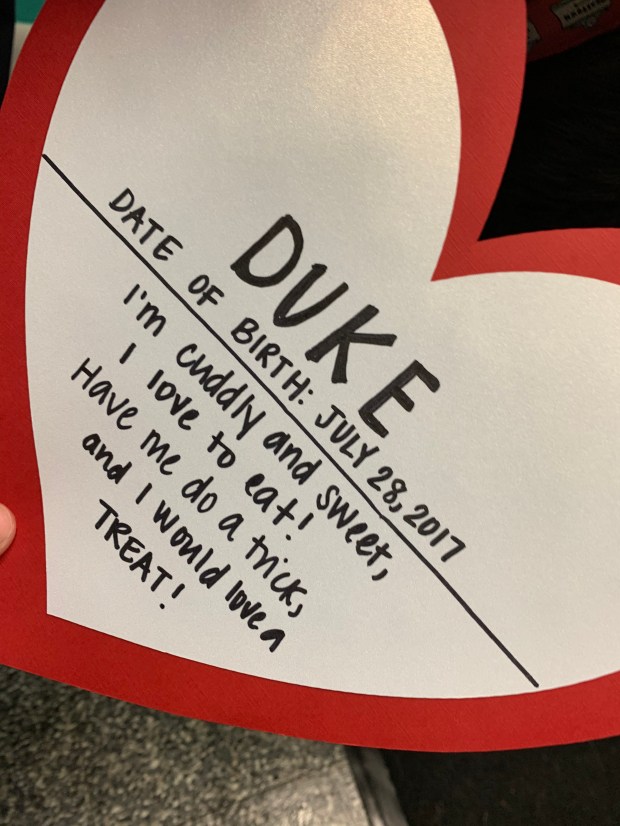 DUKE
DATE OF BIRTH: JULY 28, 2017
I'm cuddly and sweet,
I love to eat!
Have me do a trick,
and I would love a
TREAT!